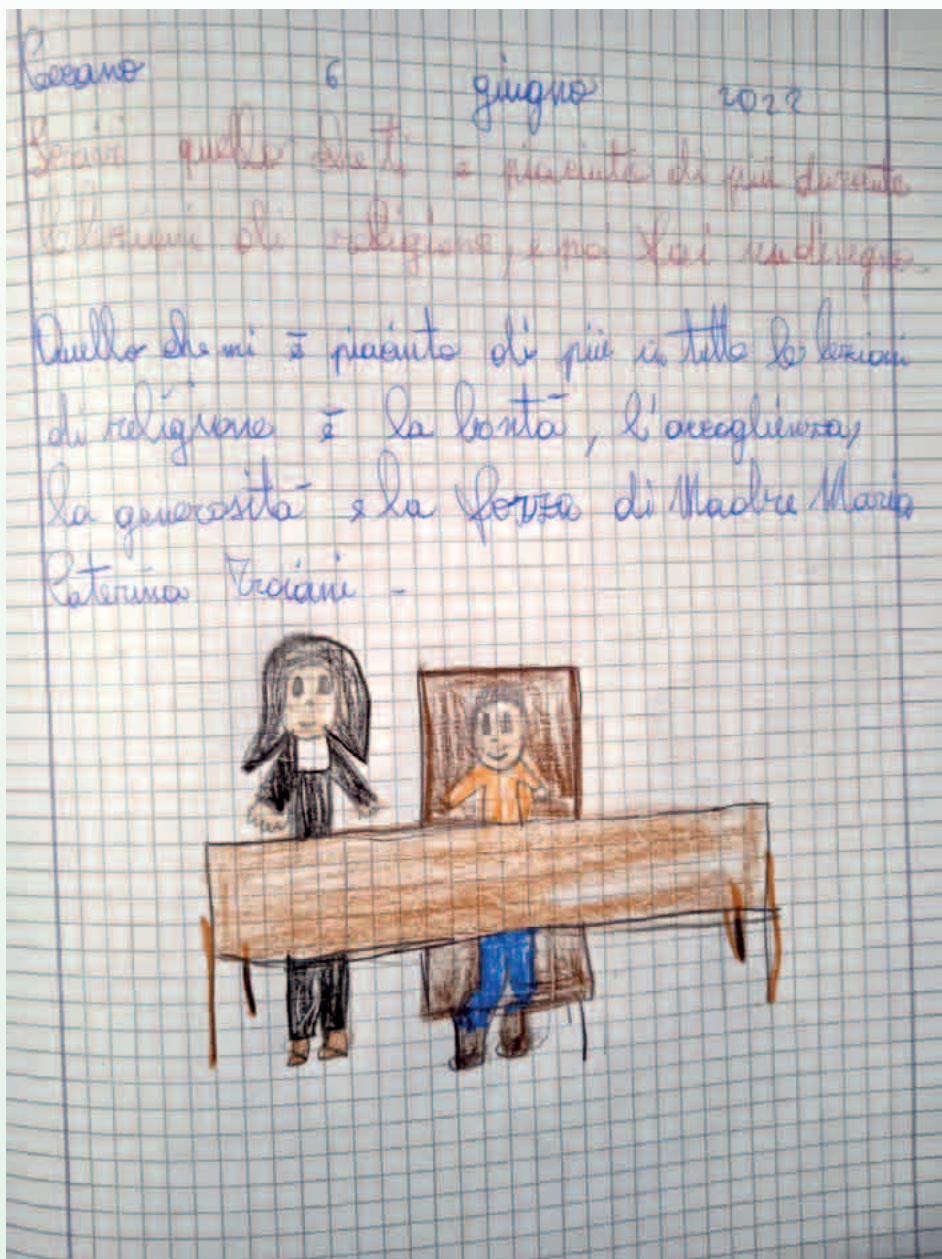 Cesano 6 giugno 2022
Scrivi quello che ti è piaciuto di più durante
le lezioni di religione, e poi fai un disegno.
Quello che mi è piaciuto di più in tutte le lezioni
di religione è la bontà, l'accoglienza,
la generosità e la forza di Madre Maria
Caterina Troiani -